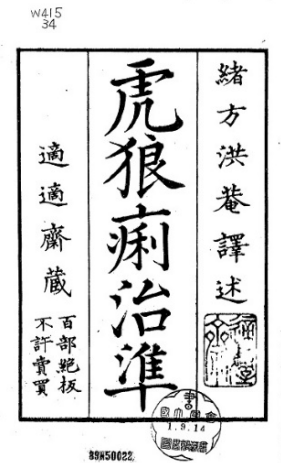 W415
34
緒方洪菴譯述
虎狼痢治準
適適齋蔵
百部絶板
不許賣買
1.9.14
89N50022